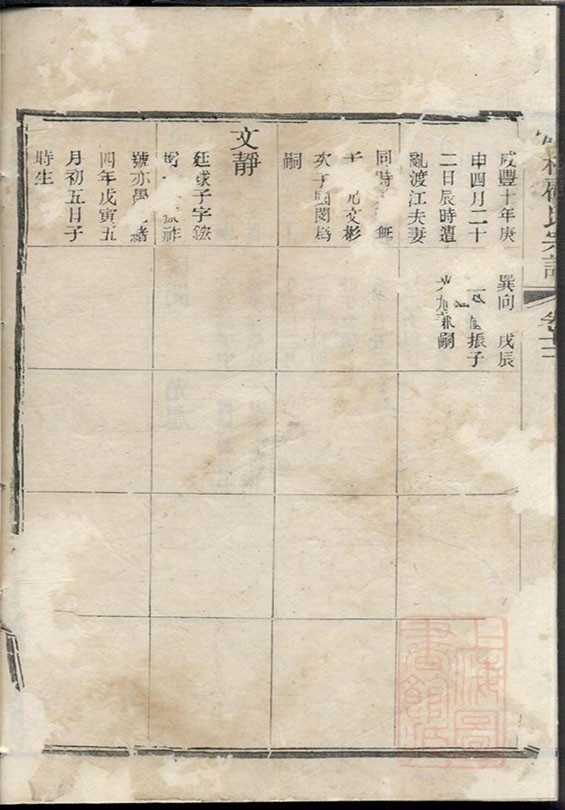 氏宗譜
卷十二
咸豐十年庚
申四月二十
二日辰時遭
亂渡江夫妻
同時 無
子 兄文彬
次子 國閔爲
嗣
巽向 戌辰
振子
嗣
文靜
廷球子字
祚
號亦 緒
四年戊寅五
月初五日子
時生
上海圖書館藏